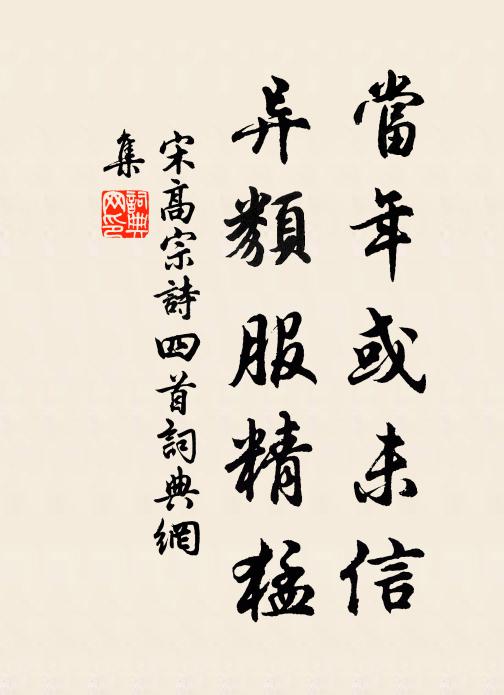 當年或未信
异類服精猛
宋高宗詩四首詞典網
集
詞典
网印